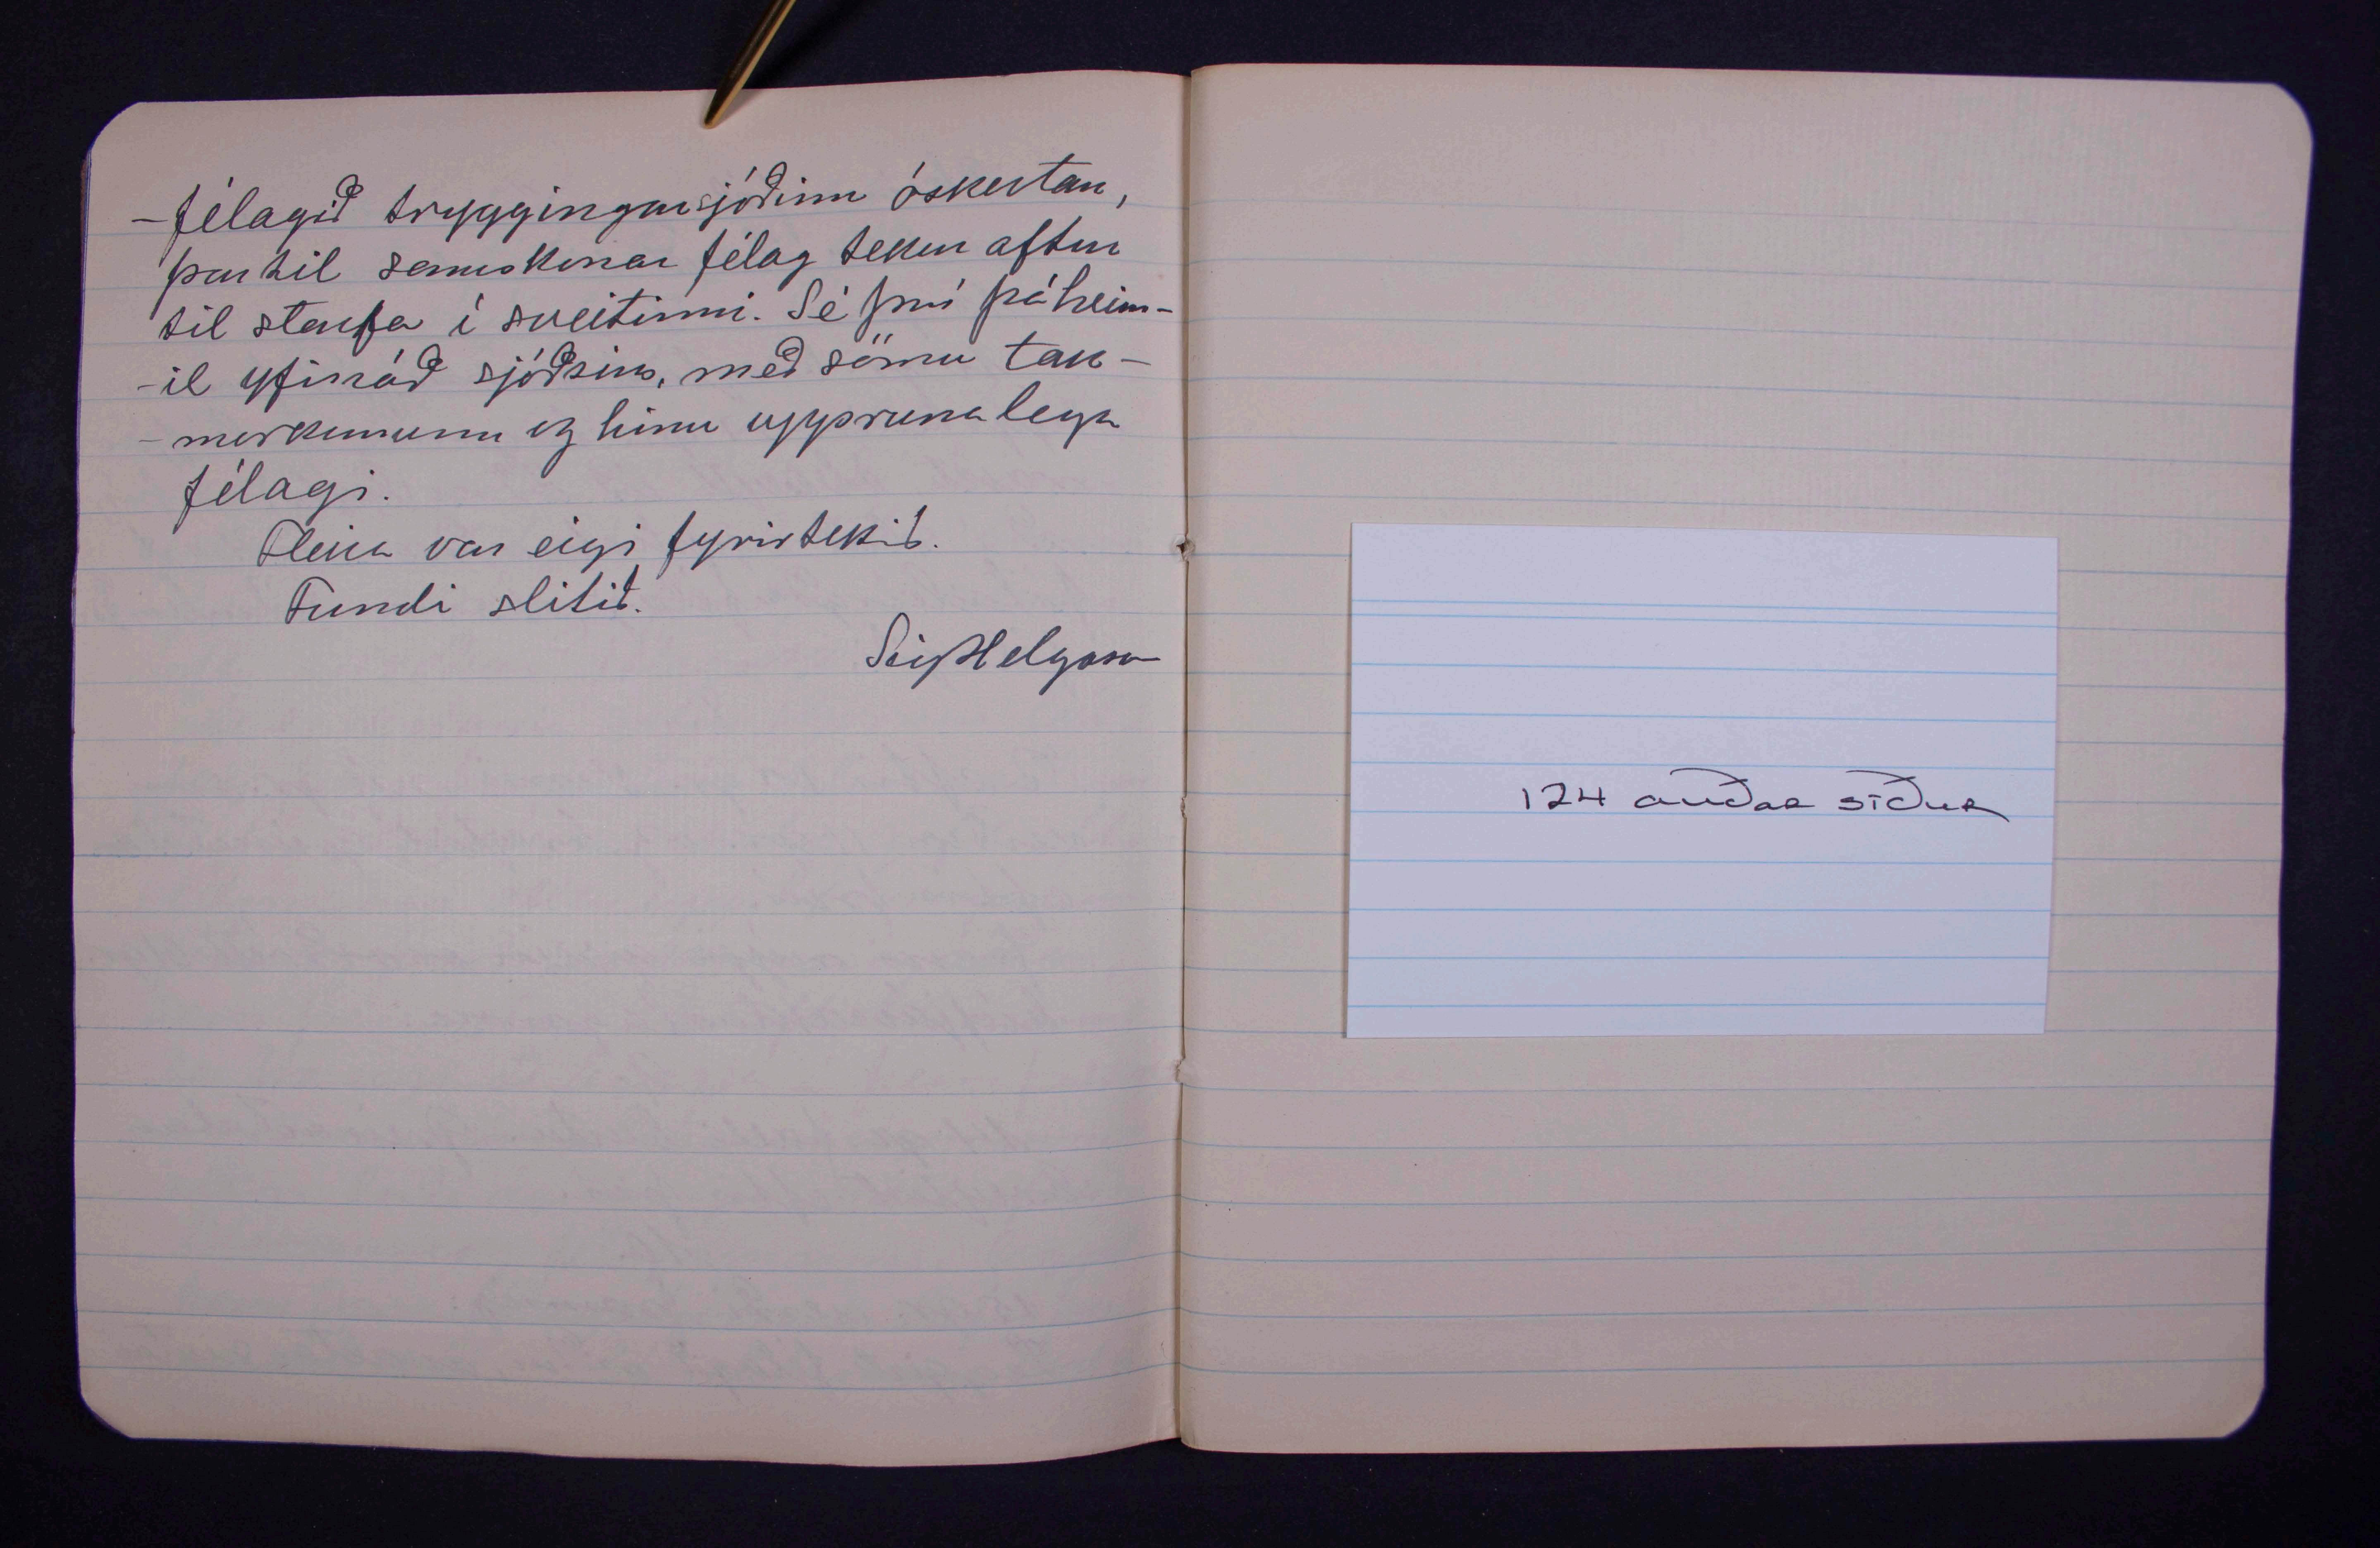 -félagið tryggingarsjóðinn óskertan,
þar til samskonar félag tekur aftur
til starfa í sveitinni. Sé því þá heim-
-il yfirráð sjóðsins, með sömu tak-
-mörkunum og hinu upprunalega
félagi.
Fleira var eigi fyrirtekið.
Fundi slitið.
Sig Helgason
124 auðar síður